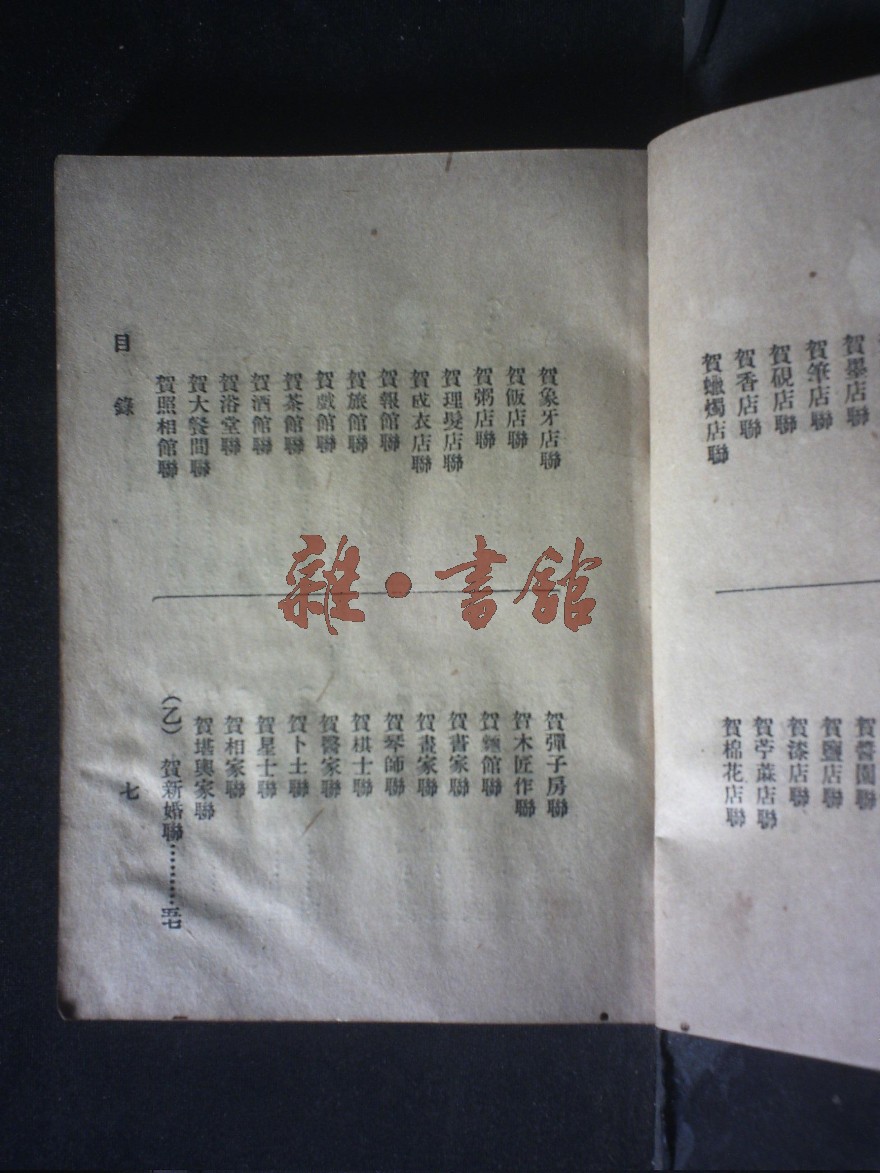 賀墨店聯
賀筆店聯
賀硯店聯
賀香店聯
賀蠟燭店聯
賀醬園聯
賀鹽店聯
賀漆店聯
賀苧蔴店聯
賀棉花店聯
賀象牙店聯
賀飯店聯
賀粥店聯
賀理髮店聯
賀成衣店聯
賀報館聯
賀旅館聯
賀戲館聯
賀茶館聯
賀酒館聯
賀浴堂聯
賀大餐間聯
賀照相館聯
賀彈子房聯
賀木匠作聯
賀麵館聯
賀書家聯
賀畫家聯
賀琴師聯
賀棋士聯
賀醫家聯
賀卜士聯
賀星士聯
賀相家聯
賀堪輿家聯
(乙) 賀新婚聯………五七
目錄
七
雜·書館